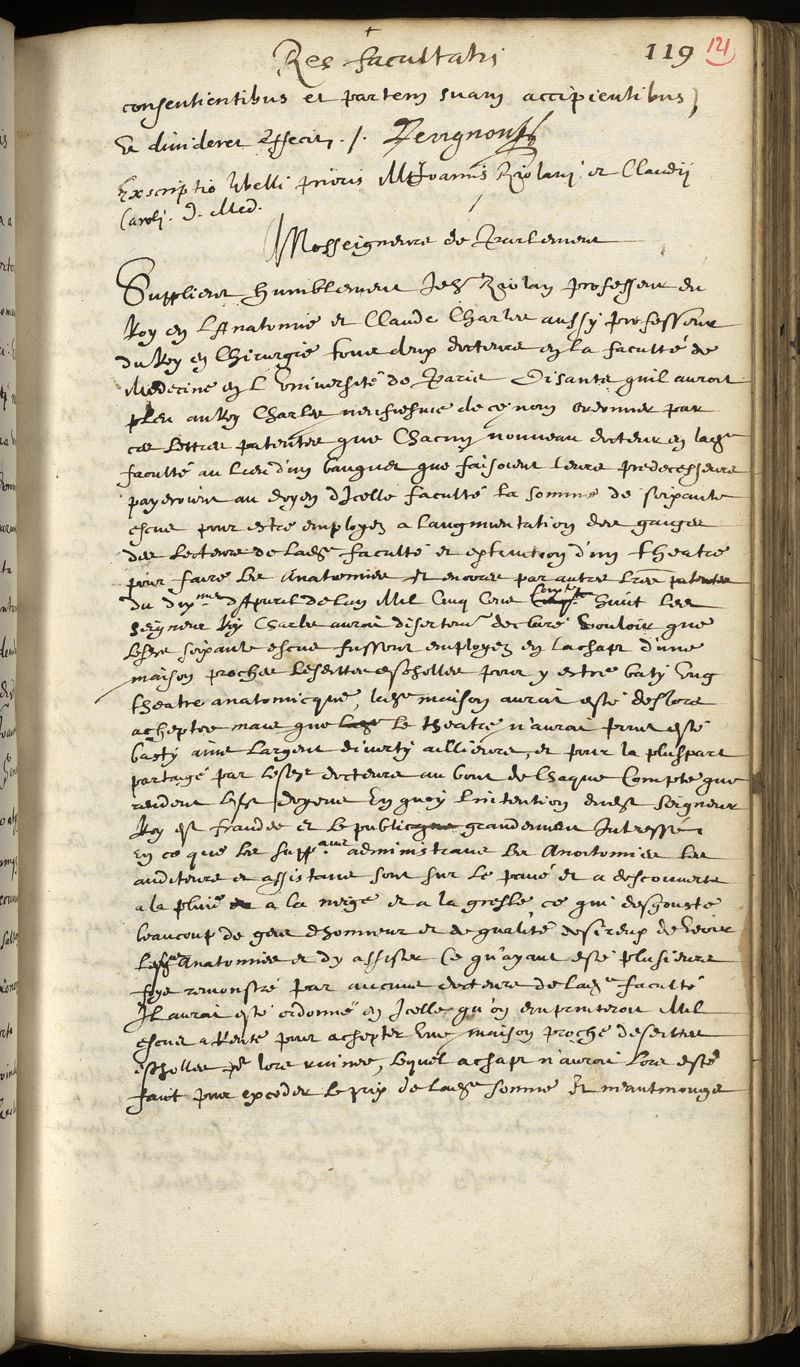 Res facultatis
119
121
consentientibus et partem suam accipientibus,
& diuideret effecit ./.
Exscriptio libelli prioris M Joannis Riolani et Claudij
Caroli. D. Med.
Messeigneurs de Parlement
Supplient humblement Jehan Riolan professeur du
Roy en l'Anatomie et Claude Charles aussy professeur
du Roy en Chirurgie tous deux docteurs en la faculté de
Medecine en l'Vniuersité de Paris Disants quil auroit
pleu au Roy Charles neufiesme de ce nom ordonner par
ces lettres patentes que Chacun nouueau docteur en lad
faculté au lieu d'un banquet que faisoient leurs predecesseurs
payeroient au doyen d'Icelle faculté la somme de soixante
escus pour estre employez a l'augmentation des gages
des lecteurs de lad faculté et d'un theatre
pour faire les Anatomies et encores par autres lres patentes
du dixme d'Apuril de l'an Mil Cinq Cens huict led
seigneur Roy Charles auroit disertem declaré vouloir que
lesd soixante escus fussent employez en l'achapt d'une
maison proche lesdittes escholles pour y estre basty Vng
theatre anatomicque, lad maison auroit esté deslors
acheptee mais que le theatre n'auroit point esté
basty ains l'argent diuerty aillieurs, et pour la pluspart
partagé par lesd docteurs au bout de Chaque Compte que
rendent lesd doyens En quoy l'intention dud seigneur
Roy est fraudee et le public grandement Intressé
En ce que les supp administrans les Anatomies les
auditeurs et assistans sont sur le paué et a descouuerts
a la pluie a la neige et a la gresle ce qui desgouste
beaucoup de gens d'honneur et de qualité desireux de veoir
lesd Anatomies et d'y assister Ce qu'ayant esté plusieurs
foys remonstré par aucuns docteurs de lad faculté
Il auroit esté ordonné en Icelle qu'on emprunteroit Mil
escus a Rente pour achepter Vne maison proche desdittes
escholles lors ruinee, lequel achapt n'auroit lors esté
faict pour exceder le prix de lad somme Et neantmoings